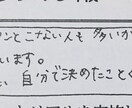 ンとこない人も多いか
います。
い 自分で決めたことく